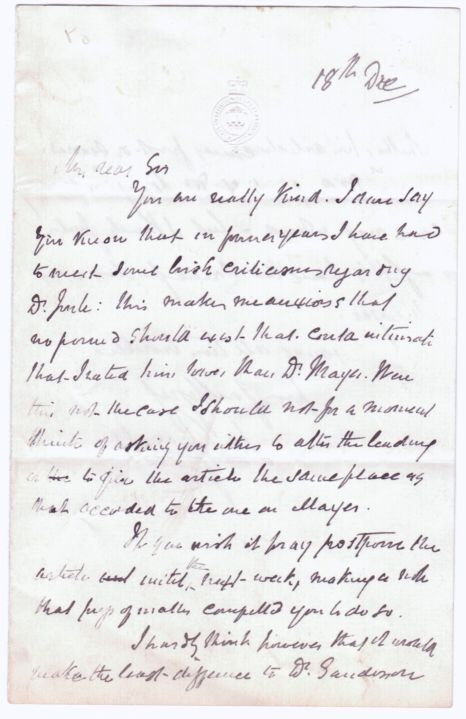 18th Dec
My dear Sir
You are really kind. I dare say
you know that in former years I have had
to meet some brisk criticisms regarding
Dr Joule: this makes me anxious that
no ground should exist that could intimate
that I rated him lower than Dr Mayer. Were
this not the case I should not for a moment
think of asking you either to alter the leading
or to give the article the same place as
that accorded to the one on Mayer.
If you wish it pray postpone the
article until the next week, making a note
that press of matter compelled you to do so.
I hardly think however that it would
make the least difference to Dr Sanderson